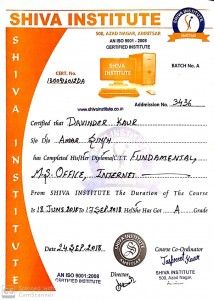 SHIVA INSTITUTE
50B, AZAD NAGAR, AMRITSAR
AN ISO 9001 - 2008
CERTIFIED INSTITUTE
SHIVA INSTITUTE
CERT. No.
BATCH No. A
www.shivainstitute.co.in
Addmission No. 2436
Certified that DAVINDER KAUR
S/o Amar Singh
has Completed His/Her Diploma C.I.T FUNDAMENTAL,
M.S. OFFICE, INTERNET
From SHIVA INSTITUTE The Duration of The Course
is 18 JUNE 2018 to 17 SEP. 2018 He/She Has Got A Grade
Date 24 SEP. 2018
Course Co-Ordinator
Director
AN ISO 9001:2008
CERTIFIED INSTITUTE
SHIVA INSTITUTE